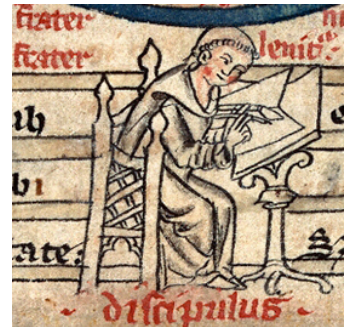 frater
frater
leuit
ih
bi
ate:
discipulus